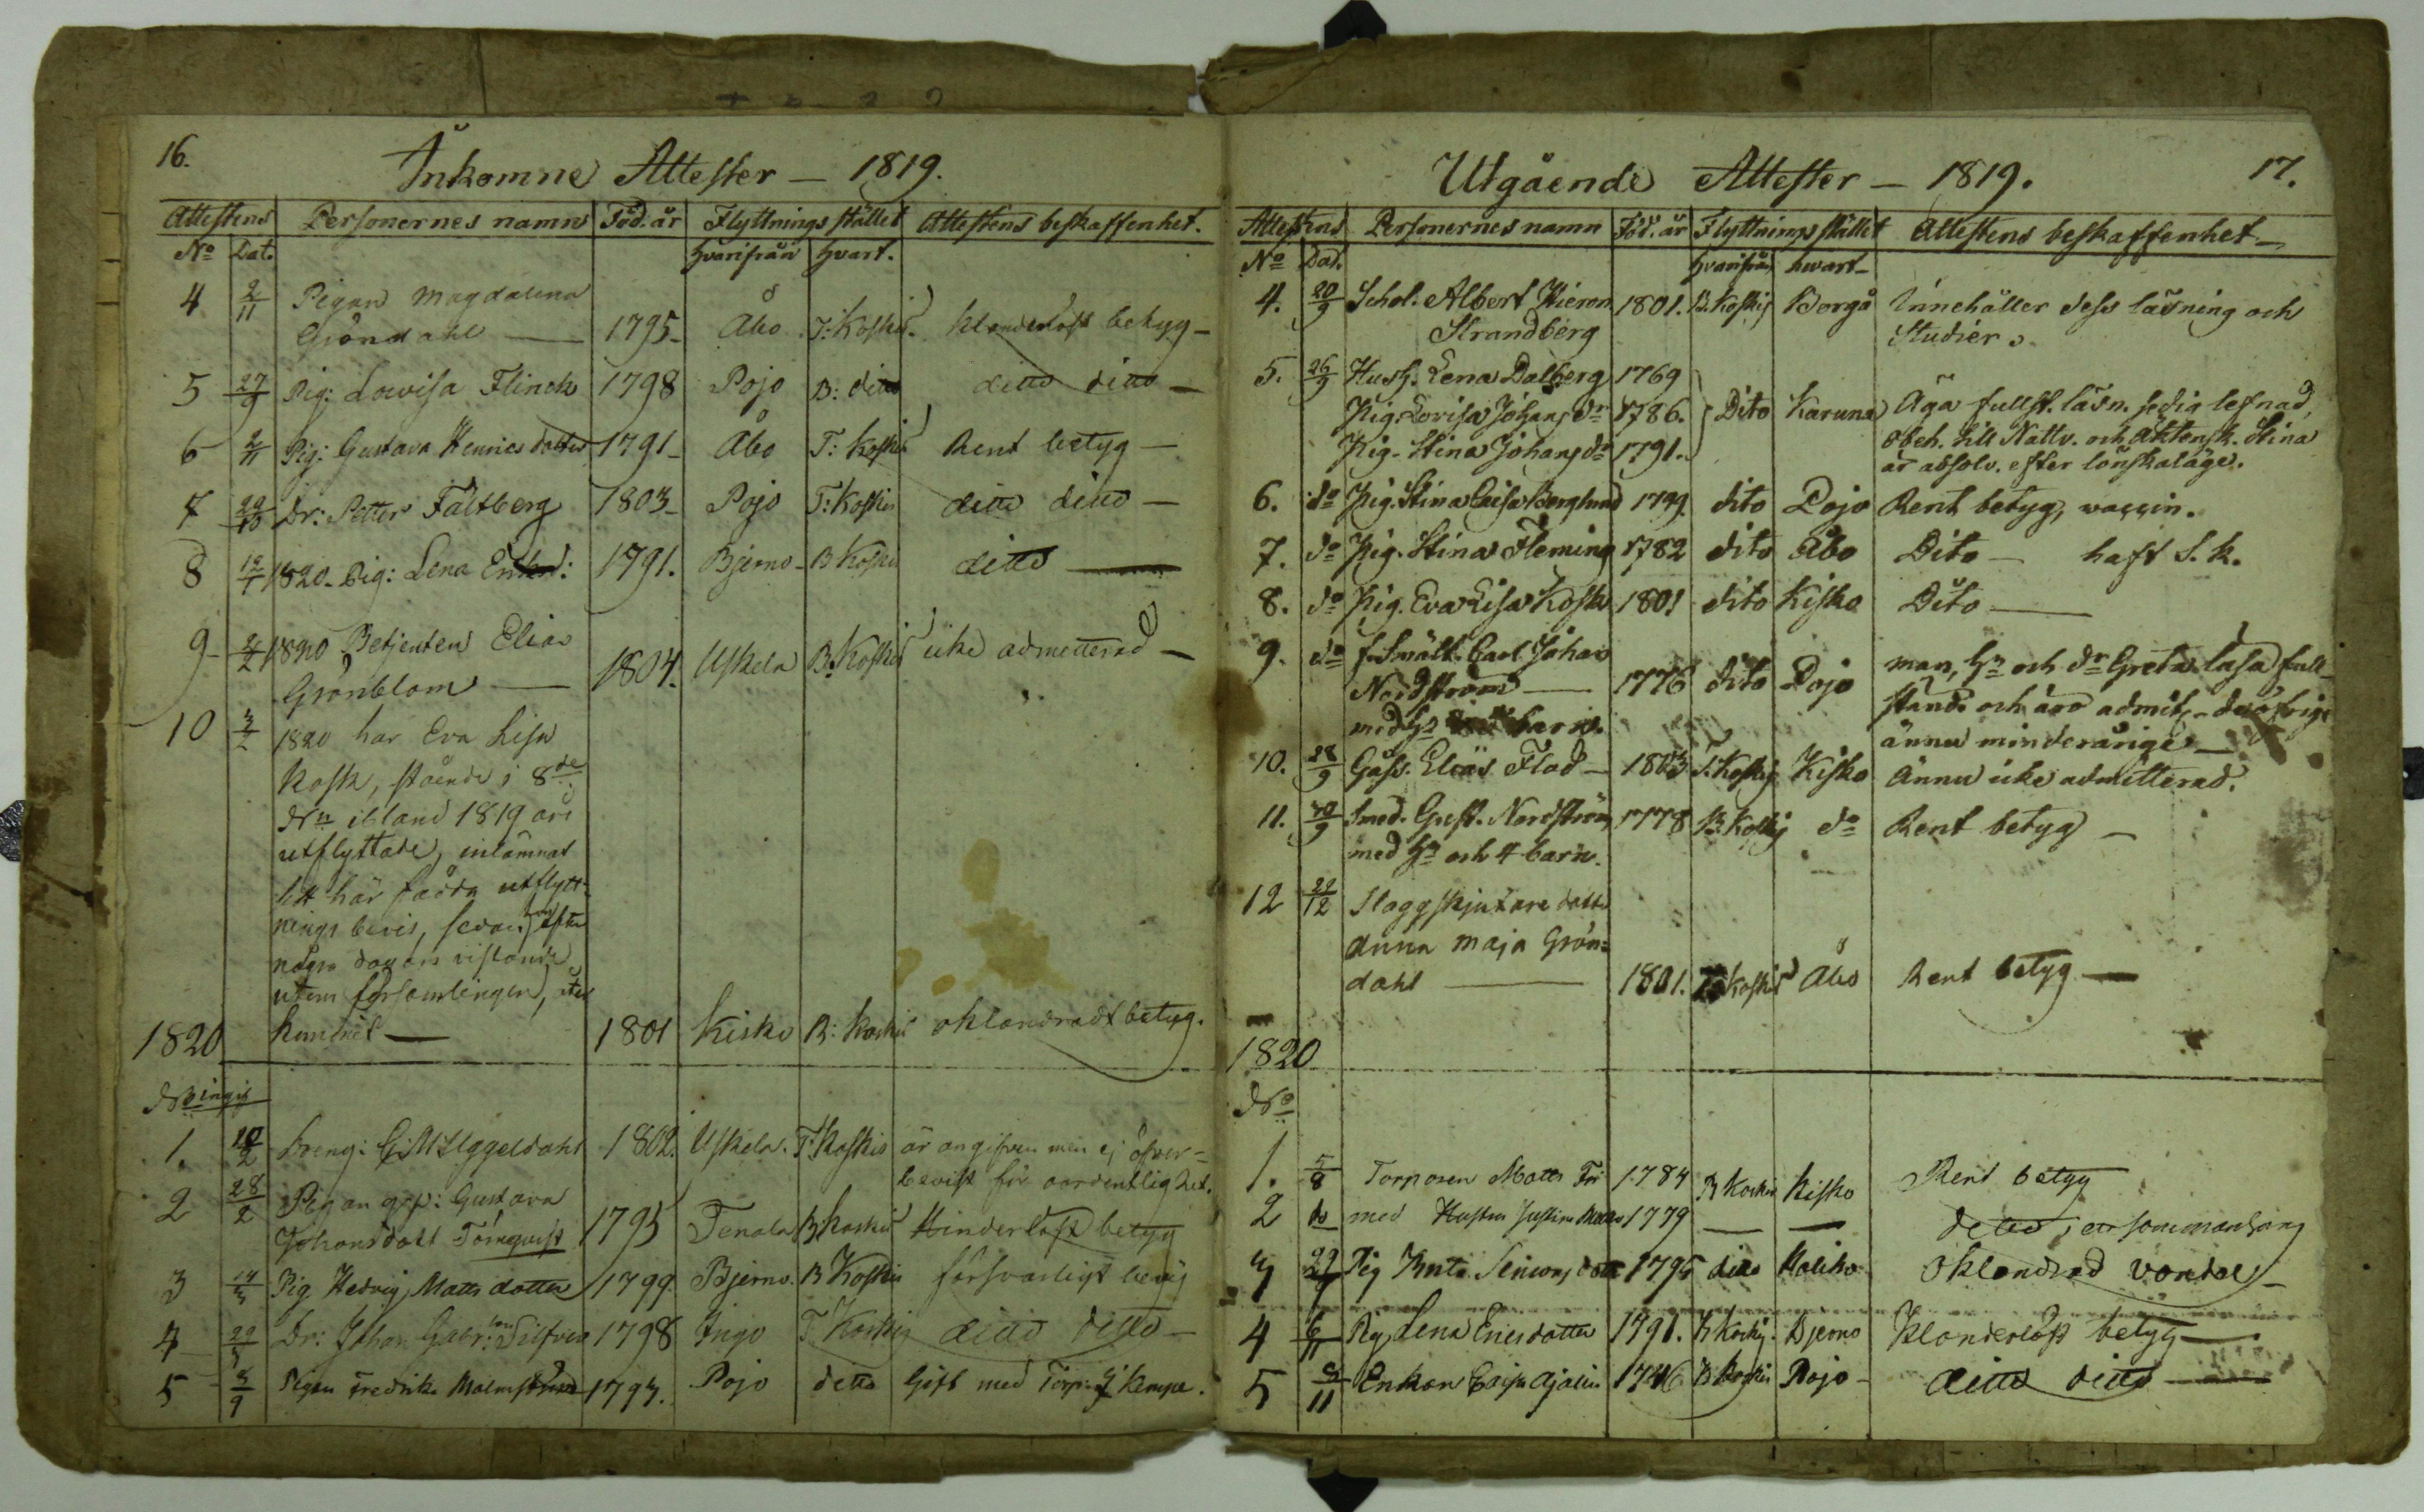 16.
Inkomne Attester — 1819.
Attestens Personernes namn Föd. år Flyttnings stället Attestens beskaffenhet.
No Dat. hvarifrån hvart.
4 2/11 Pigan Magdalena
Gröndahl — 1795 Åbo T: Koskis klanderlöst betyg —
5 27/9 Pig: Lovisa Flinck 1798 Pojo B: ditto ditto ditto —
6 2/11 Pig: Gustava Henricsdotter 1791 Åbo T: Koskis Rent betyg —
7 22/10 Dr: Petter Fältberg 1803 Pojo T: Koskis ditto ditto —
8 12/1 1820 Pig: Lena 1791. Bjerno B Koskis ditto —
9 2/2 1820 Betjenten Elias
Grönblom — 1804. Uskela B. Koskis icke admitterad —
10 3/2 1820 har Eva Lisa
Kosk, stående i 8de
No ibland 1819 års
utflyttade, inlämnat
sitt här fådda utflytt-
nings bevis, sedan hon efter
några dagars vistande
utom församlingen, åter
kommit — 1801 Kisko B: Koskis oklandradt betyg.
1820
No ingis
1. 10/2 Dreng: Uggeldahl 1802. Uskela. T. Koskis är angifven men ej öfver-
bevist för oordentlighet.
2 28/2 Pigan Gustava
Johansdott Törnqvist 1795 Tenala B Koskis Hinderlöst betyg
3 14/3 Pig Hedvig Matts dotter 1799. Bjerno. B Koskis försvarligt betyg
4 22/3 Dr: Johan Gabr: Silfver 1798 Ingo T. Koskis ditto ditto —
5 3/9 Pigan Fredrika 1797. Pojo ditto Gift med Torp: Kempe.
Utgående Attester — 1819. 17.
Attestens Personernes namn Föd. år Flyttnings stället Attestens beskaffenhet —
No Dat. hvarifrån hwart —
4. 20/9 Schol. Albert Hieron. 1801. B. Koskis Borgå Innehåller dess läsning och
Strandberg Studier.
5. 26/9 Hush. Lena Dalberg 1769
Pig. Lovisa Johans dr 1786. Dito Karuna Äga fullst. läsn. sedig lefnad,
Pig. Stina Johans dr 1791. obeh. till Nattv. och Äktensk. Stina
är absolv. efter lönskaläge.
6. do Pig. Stina Caisa Berglund 1799 dito Pojo Rent betyg, vaccin.
7. do Pig. Stina Fleming 1782 dito Åbo Dito — haft S. k.
8. do Pig. Eva Lisa Kosk 1801 dito Kisko Dito —
9. do f. Smält. Carl Johan man, hu och dr Greta läsa full-
Nordström — 1776 dito Pojo ständ. och äro admitt. de öfrige
med hu barn. ännu minderårige —
10. 28/9 Goss. Elias Flod — 1803 T. Koskis Kisko Ännu icke admitterad.
11. 30/9 Smed. Gust. Nordström 1778 B. Koskis do Rent betyg —
med hu och 4 barn.
12 22/12 Slaggskjutare dottr
Anna Maja Grön-
dahl — 1801. Koskis Åbo Rent betyg —
1820
No
1. 5/8 Torparen Matts 1784 B Koskis Kisko Rent betyg
2 do med Hustru Justina 1779 — — ditto, en sammanhang
3 29/9 Pig Simonsdott 1795 ditto Haliko Oklandrad vandel —
4 6/11 Pig Lena Ericsdotter 1791. B Koskis. Bjerno Klanderlöst betyg —
5 9/11 Enkan Caisa Ajalin 1746 B Koskis Pojo — ditto ditto —